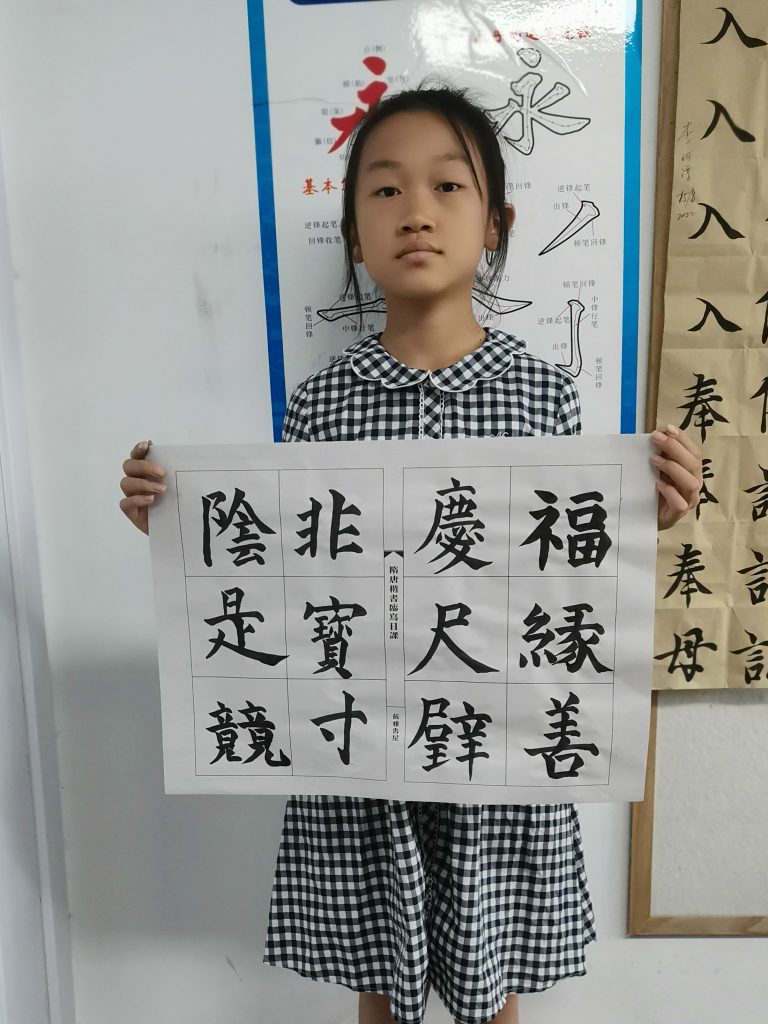 永
永
点(侧)
基本
逆锋起笔
回锋收笔
顿笔回锋
中锋行笔
逆锋起笔
出锋
顿笔回锋
顿笔回锋
逆锋起笔
中锋行笔
出锋
顿笔回锋
福緣善
慶尺璧
隋唐楷書臨寫日課
非寶寸
陰是競
入入入入奉奉奉母
2022